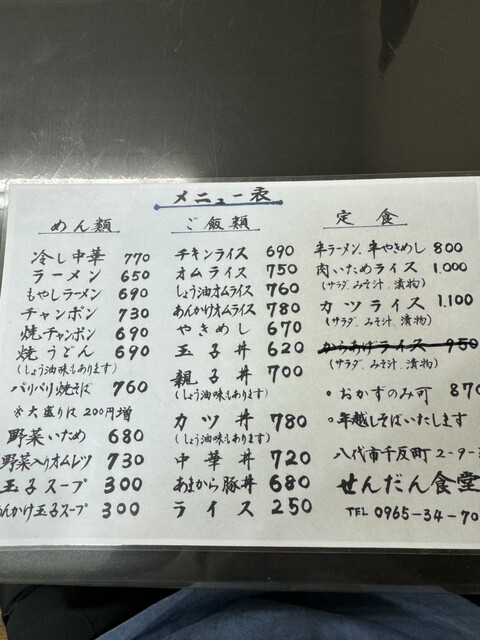 メニュー表
めん類
冷し中華 770
ラーメン 650
もやしラーメン 690
チャンポン 730
焼チャンポン 690
焼うどん 690
(しょう油味もあります)
パリパリ焼そば 760
※大盛りは200円増
野菜いため 680
野菜入りオムレツ 730
玉子スープ 300
んかけ玉子スープ 300
ご飯類
チキンライス 690
オムライス 750
しょう油オムライス 760
あんかけオムライス 780
やきめし 670
玉子丼 620
親子丼 700
(しょう油味もあります)
カツ丼 780
(しょう油味もあります)
中華丼 720
あまから豚丼 680
ライス 250
定食
半ラーメン、半やきめし 800
肉いためライス 1,000
(サラダ、みそ汁、漬物)
カツライス 1,100
(サラダ、みそ汁、漬物)
からあげライス 950
(サラダ、みそ汁、漬物)
・おかずのみ可 870
・年越しそばいたします
八代市千反町2-9-
せんだん食堂
TEL 0965-34-70